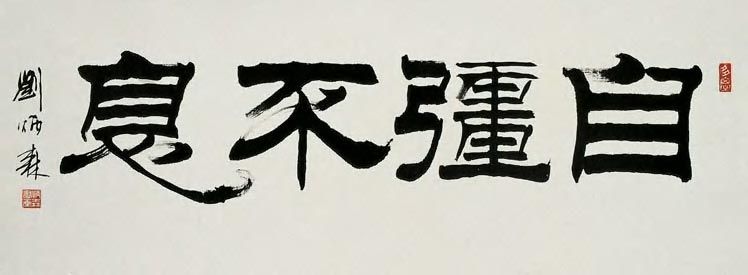 自彊不息
劉炳森